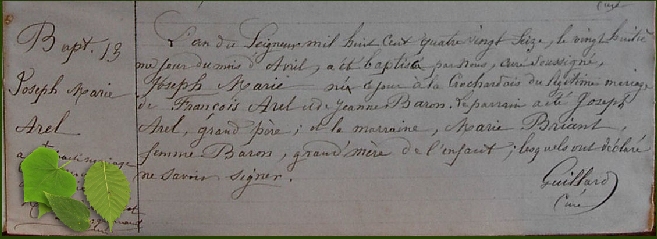 Bapt. 13
Joseph Marie
Arel
L'an du Seigneur mil huit cent quatre vingt seize, le vingt huitiè
me jour du mois d'Avril, a été baptisé par nous, curé soussigné,
Joseph Marie né ce jour à la Crochardais du légitime mariage
de François Arel et de Jeanne Baron. Le parrain a été Joseph
Arel, grand père ; et la marraine, Marie Briant,
femme Baron, grand'mère de l'enfant ; lesquels ont déclaré
ne savoir signer.
Guillard
Curé